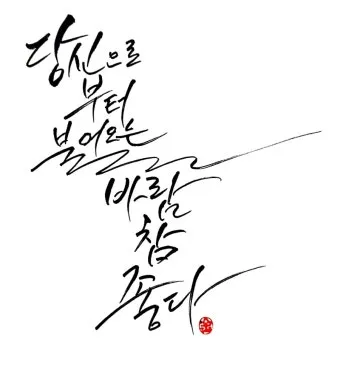 당신으로
부터
불어오는
바람
참
좋다